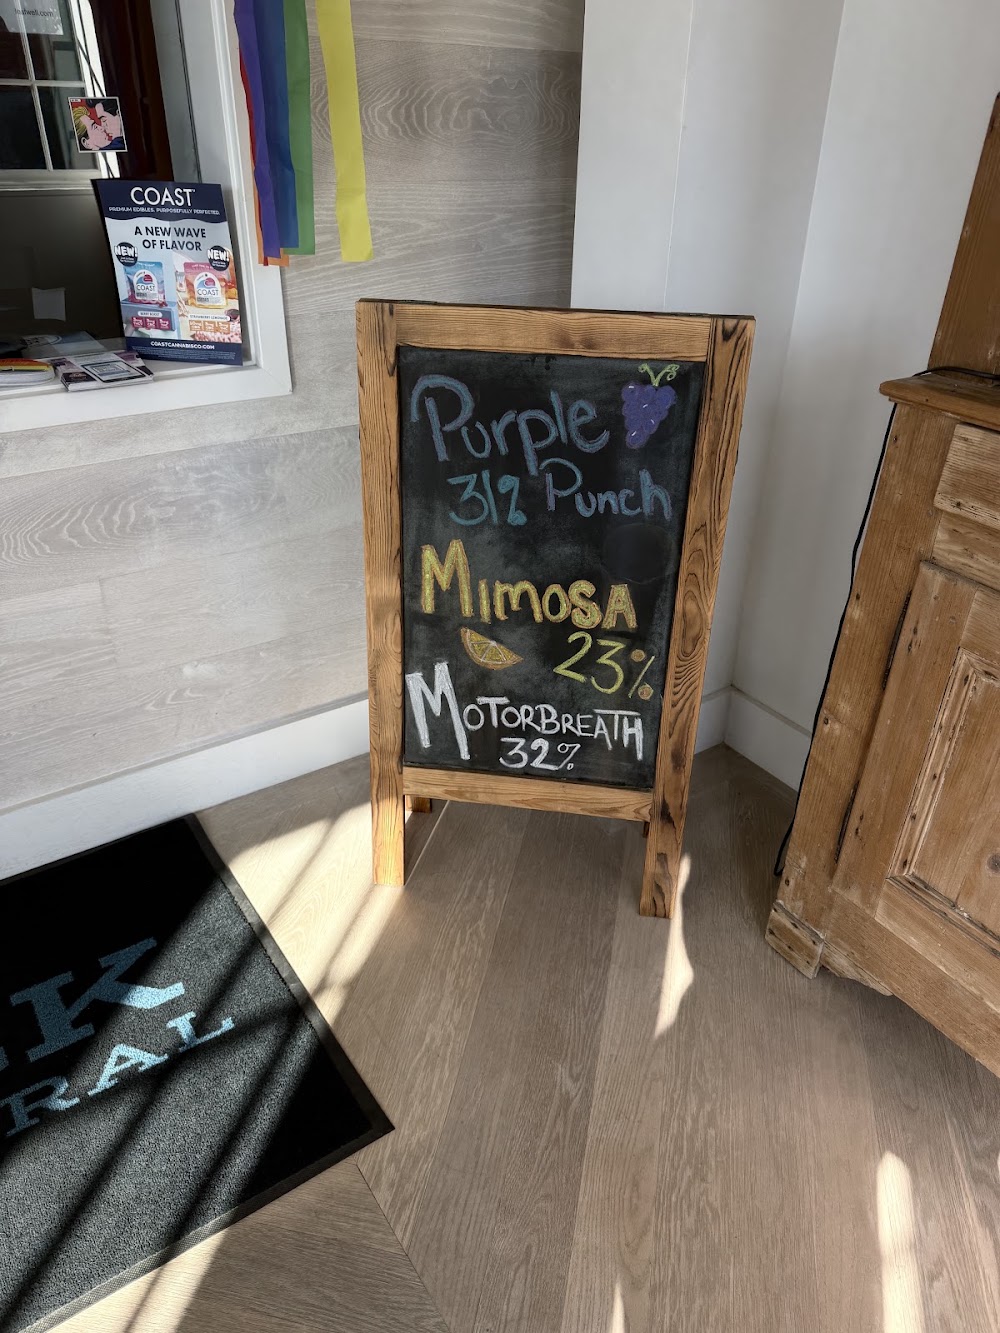 leafwell.com
COAST
PREMIUM EDIBLES. PURPOSEFULLY PERFECTED.
A NEW WAVE
OF FLAVOR
NEW!
NEW!
COAST
COAST
COASTCANNABISCO.COM
Purple
31% Punch
Mimosa
23%
MOTORBREATH
32%
K
RAL